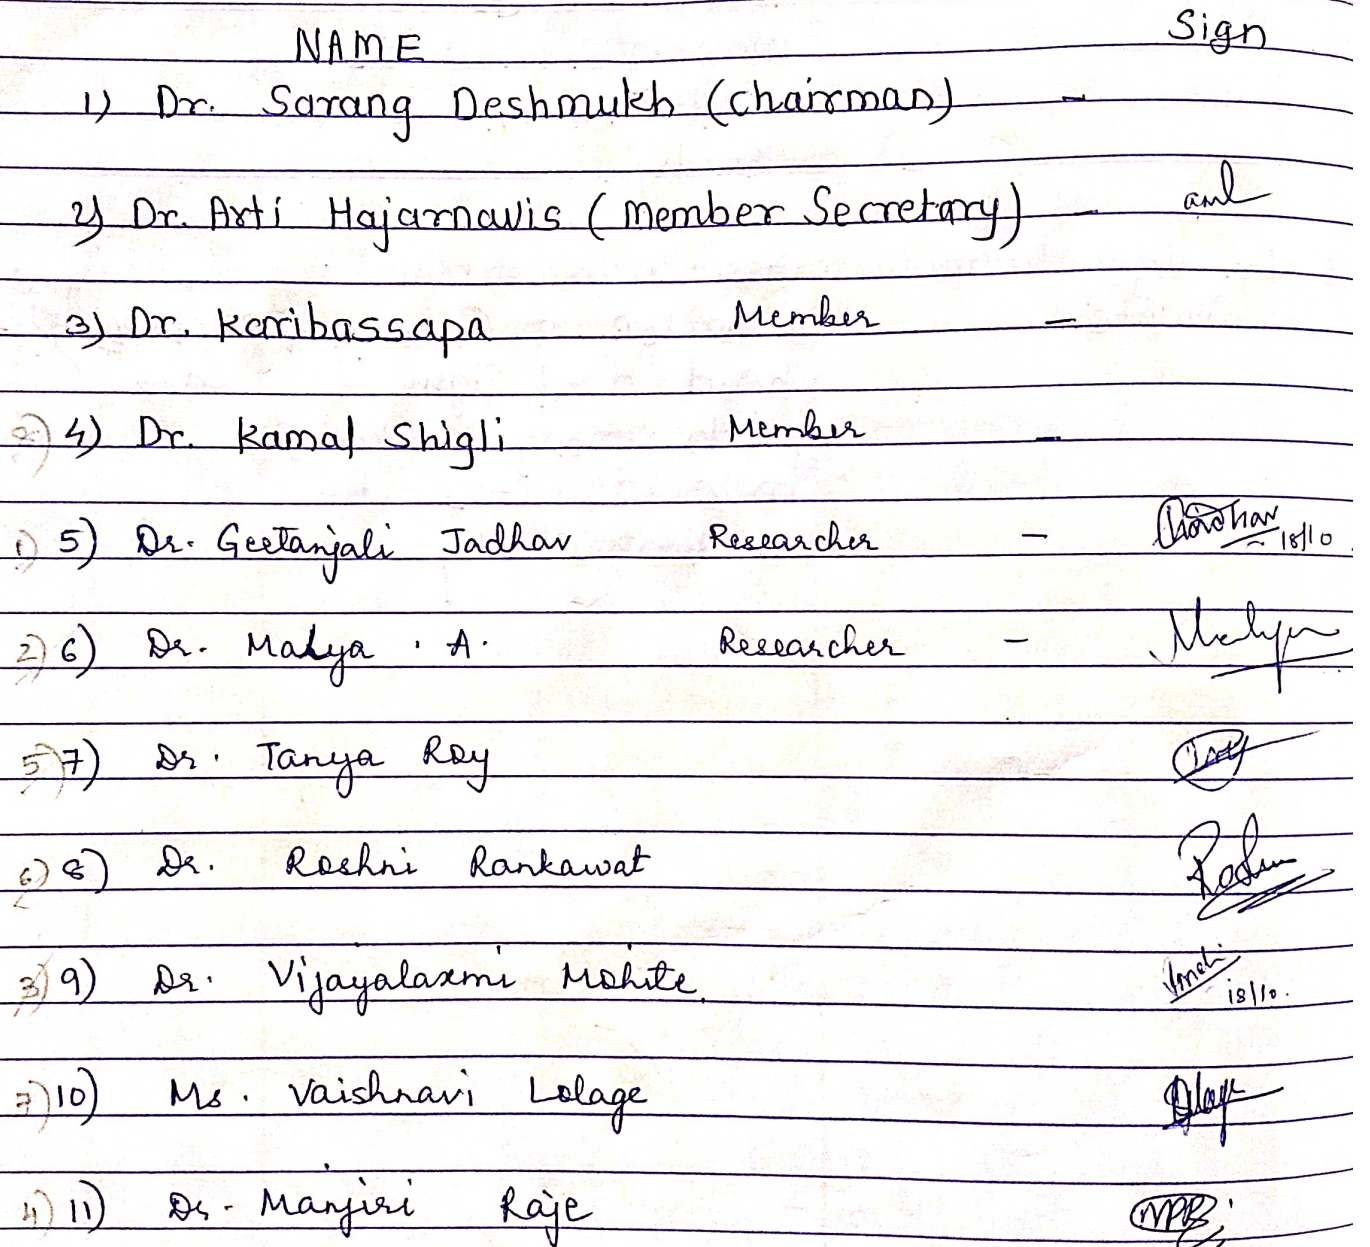 NAME Sign
1) Dr. Sarang Deshmukh (chairman) -
2) Dr. Arti Hajarnavis (Member Secretary) -
3) Dr. Karibassapa Member -
4) Dr. Kamal Shigli Member -
1) 5) Dr. Geetanjali Jadhav Researcher - 18/10
2) 6) Dr. Malya . A. Researcher -
5) 7) Dr. Tanya Roy
6) 8) Dr. Roshni Rankawat
3) 9) Dr. Vijayalaxmi Mohite. 18/10.
7) 10) Ms. Vaishnavi Lolage
4) 11) Dr. Manjiri Raje